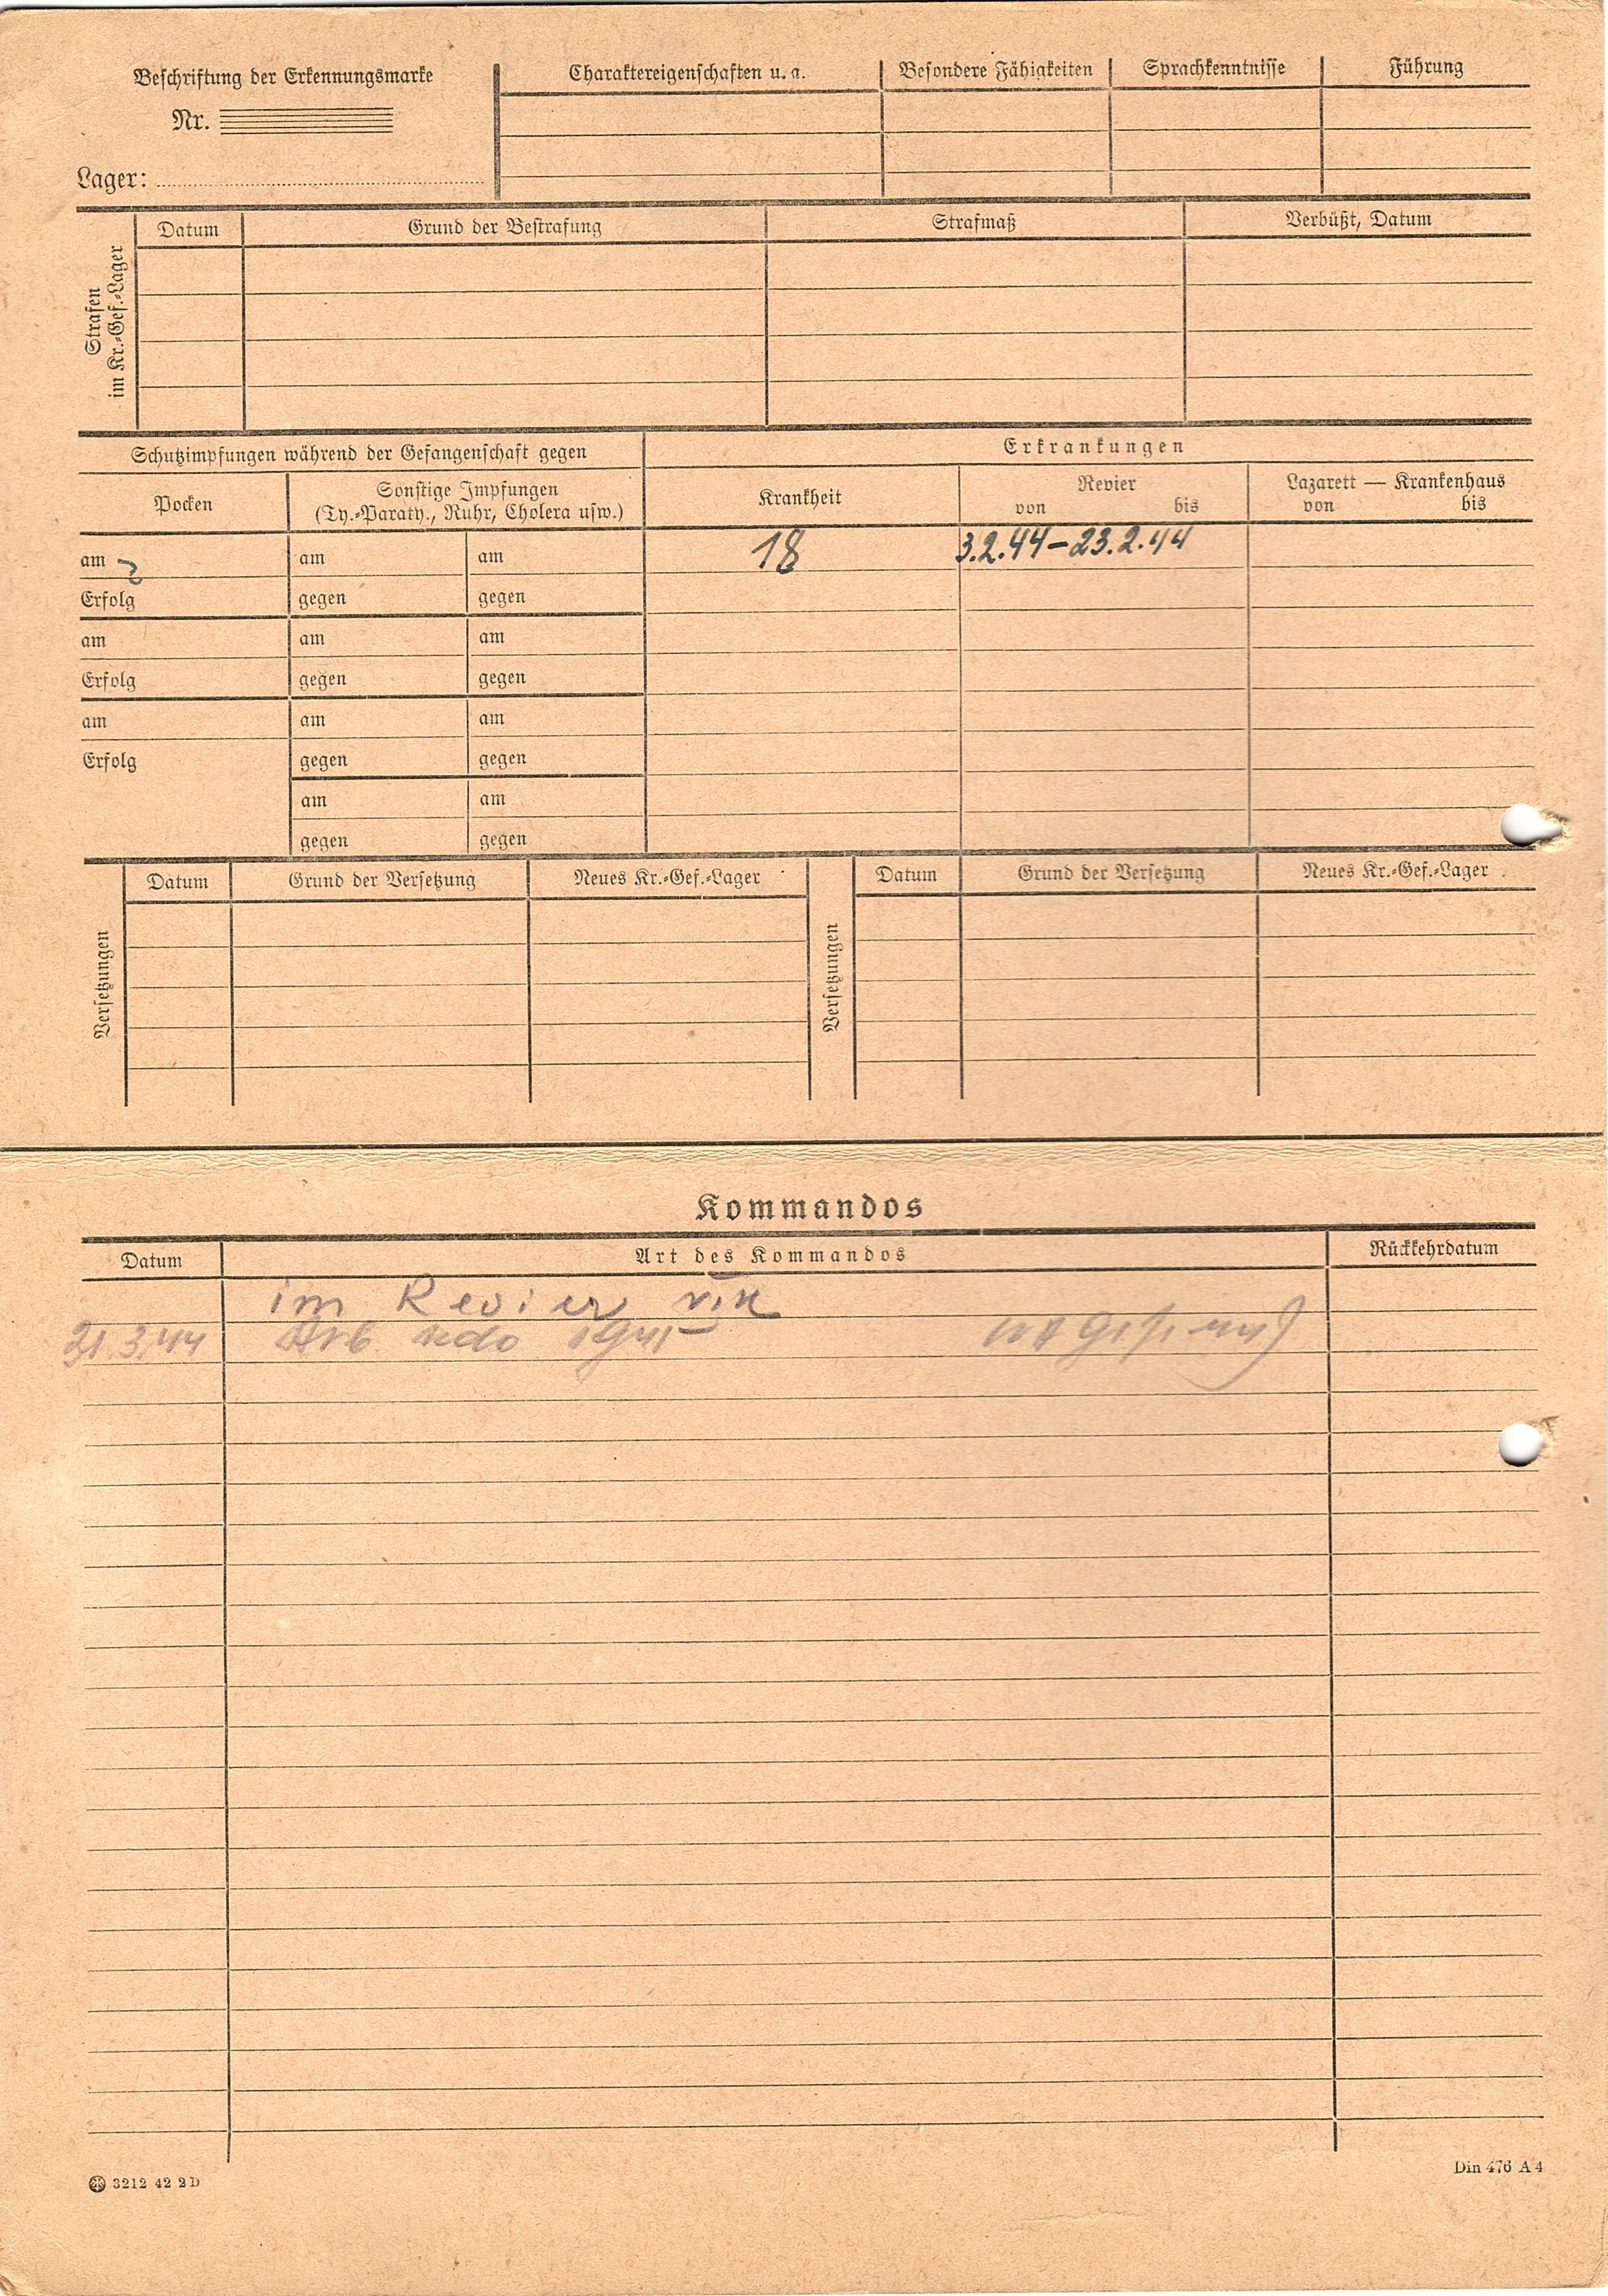 Beschriftung der Erkennungsmarke
Nr.
Lager:
Charaktereigenschaften u. a. Besondere Fähigkeiten Sprachkenntnisse Führung
Strafen
im Kr.-Gef.-Lager
Datum Grund der Bestrafung Strafmaß Verbüßt, Datum
Schutzimpfungen während der Gefangenschaft gegen
Erkrankungen
Pocken
Sonstige Impfungen
(Ty.-Paraty., Ruhr, Cholera usw.)
Krankheit
Revier
von bis
Lazarett — Krankenhaus
von bis
am am am 18 3.2.44–23.2.44
Erfolg gegen gegen
am am am
Erfolg gegen gegen
am am am
Erfolg gegen gegen
am am
gegen gegen
Versetzungen
Datum Grund der Versetzung Neues Kr.-Gef.-Lager
Versetzungen
Datum Grund der Versetzung Neues Kr.-Gef.-Lager
Kommandos
Datum Art des Kommandos Rückkehrdatum
im Revier
21.3.44 Arb. Kdo
3212 42 2D
Din 476 A4